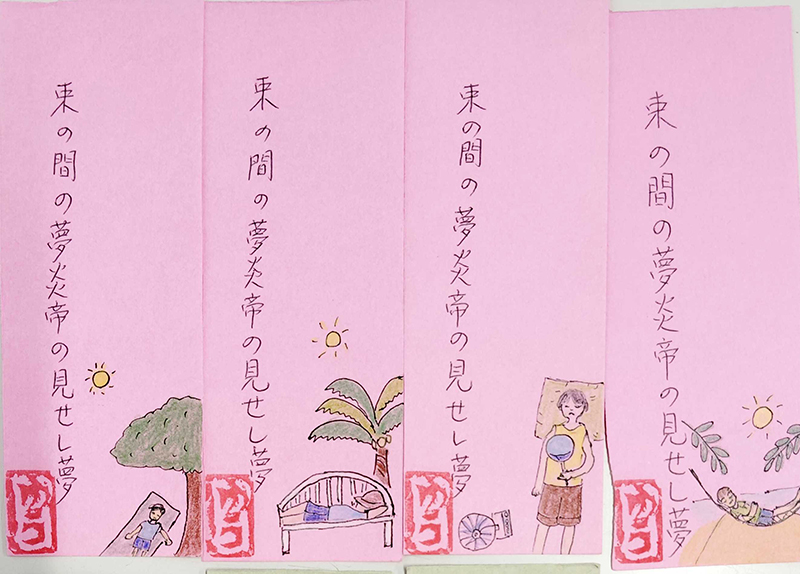 束の間の夢炎帝の見せし夢
束の間の夢炎帝の見せし夢
束の間の夢炎帝の見せし夢
束の間の夢炎帝の見せし夢